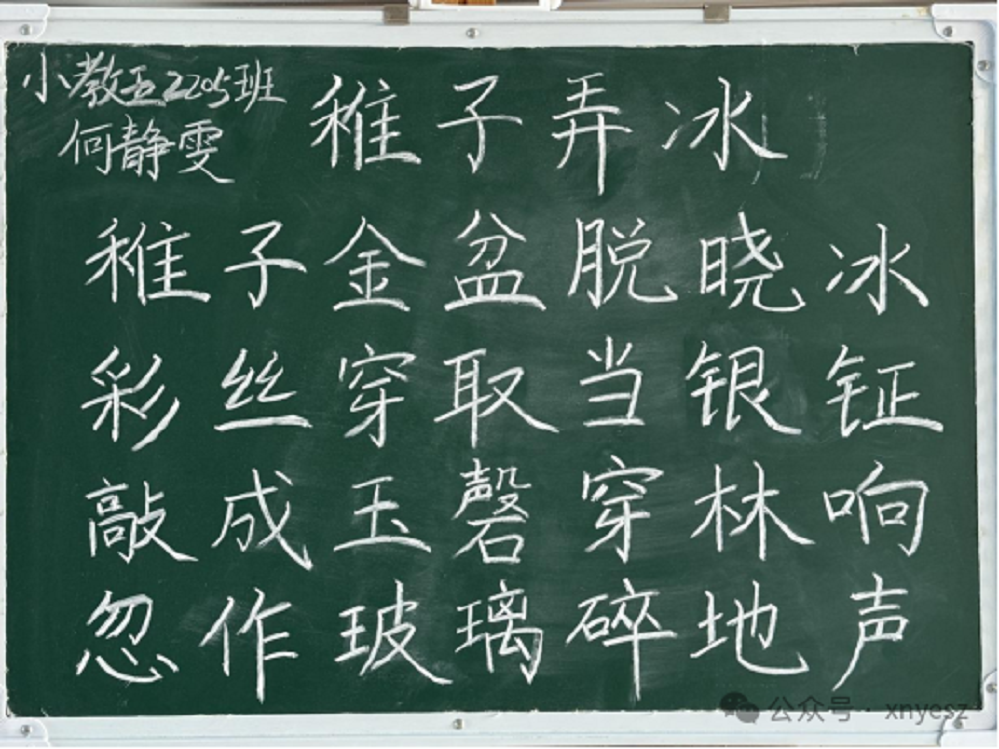 小教五2205班
何静雯
稚子弄冰
稚子金盆脱晓冰
彩丝穿取当银钲
敲成玉磬穿林响
忽作玻璃碎地声
公众号 · xnyesz